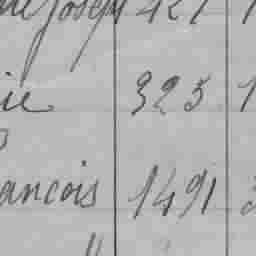 Joseph 427
ie 325 1
ancois 1491 3
"